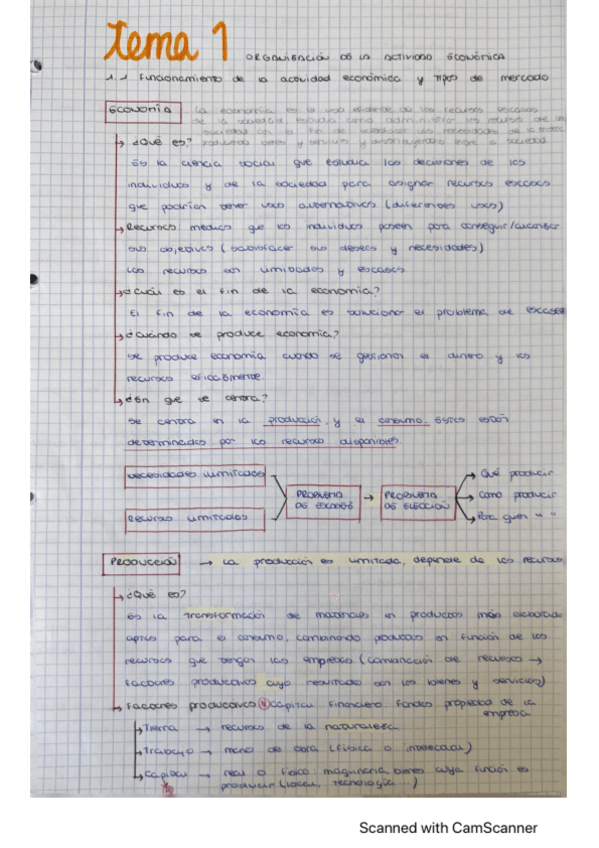 Tema 1 ORGANIZACIÓN DE LA ACTIVIDAD ECONÓMICA
1.1 Funcionamiento de la actividad económica y tipos de mercado
ECONOMÍA La economía es el uso eficiente de los recursos escasos
de la sociedad estudia como administrar los recursos de una
sociedad con el fin de satisfacer las necesidades de la
¿Qué es? bienes y servicios y
Es la ciencia social que estudia las decisiones de los
individuos y de la sociedad para asignar recursos escasos
que podrían tener usos alternativos (diferentes usos)
Recursos medios que los individuos poseen para conseguir/alcanzar
sus objetivos (satisfacer sus deseos y necesidades)
Los recursos son limitados y escasos
¿Cuál es el fin de la economía?
El fin de la economía es solucionar el problema de escasez
¿Cuándo se produce economía?
Se produce economía cuando se gestionan el dinero y los
recursos eficazmente.
¿En que se centra?
Se centra en la producción, y el consumo, estos están
determinados por los recursos disponibles.
Necesidades ilimitadas
PROBLEMA DE ESCASEZ → PROBLEMA DE ELECCIÓN
Qué producir
Como producir
Para quien " "
Recursos limitados
PRODUCCIÓN → La producción es limitada, depende de los recursos
¿Qué es?
Es la transformación de materiales en productos más elaborados
aptos para el consumo, combinando productos en función de los
recursos que tengan las empresas (combinación de recursos →
factores productivos cuyo resultado son los bienes y servicios)
Factores productivos Capital financiero: fondos propiedad de la
empresa
Tierra → recursos de la naturaleza
Trabajo → mano de obra (física o intelectual)
Capital → real o físico: maquinaria, bienes cuya función es
producir (local, tecnología...)
Scanned with CamScanner